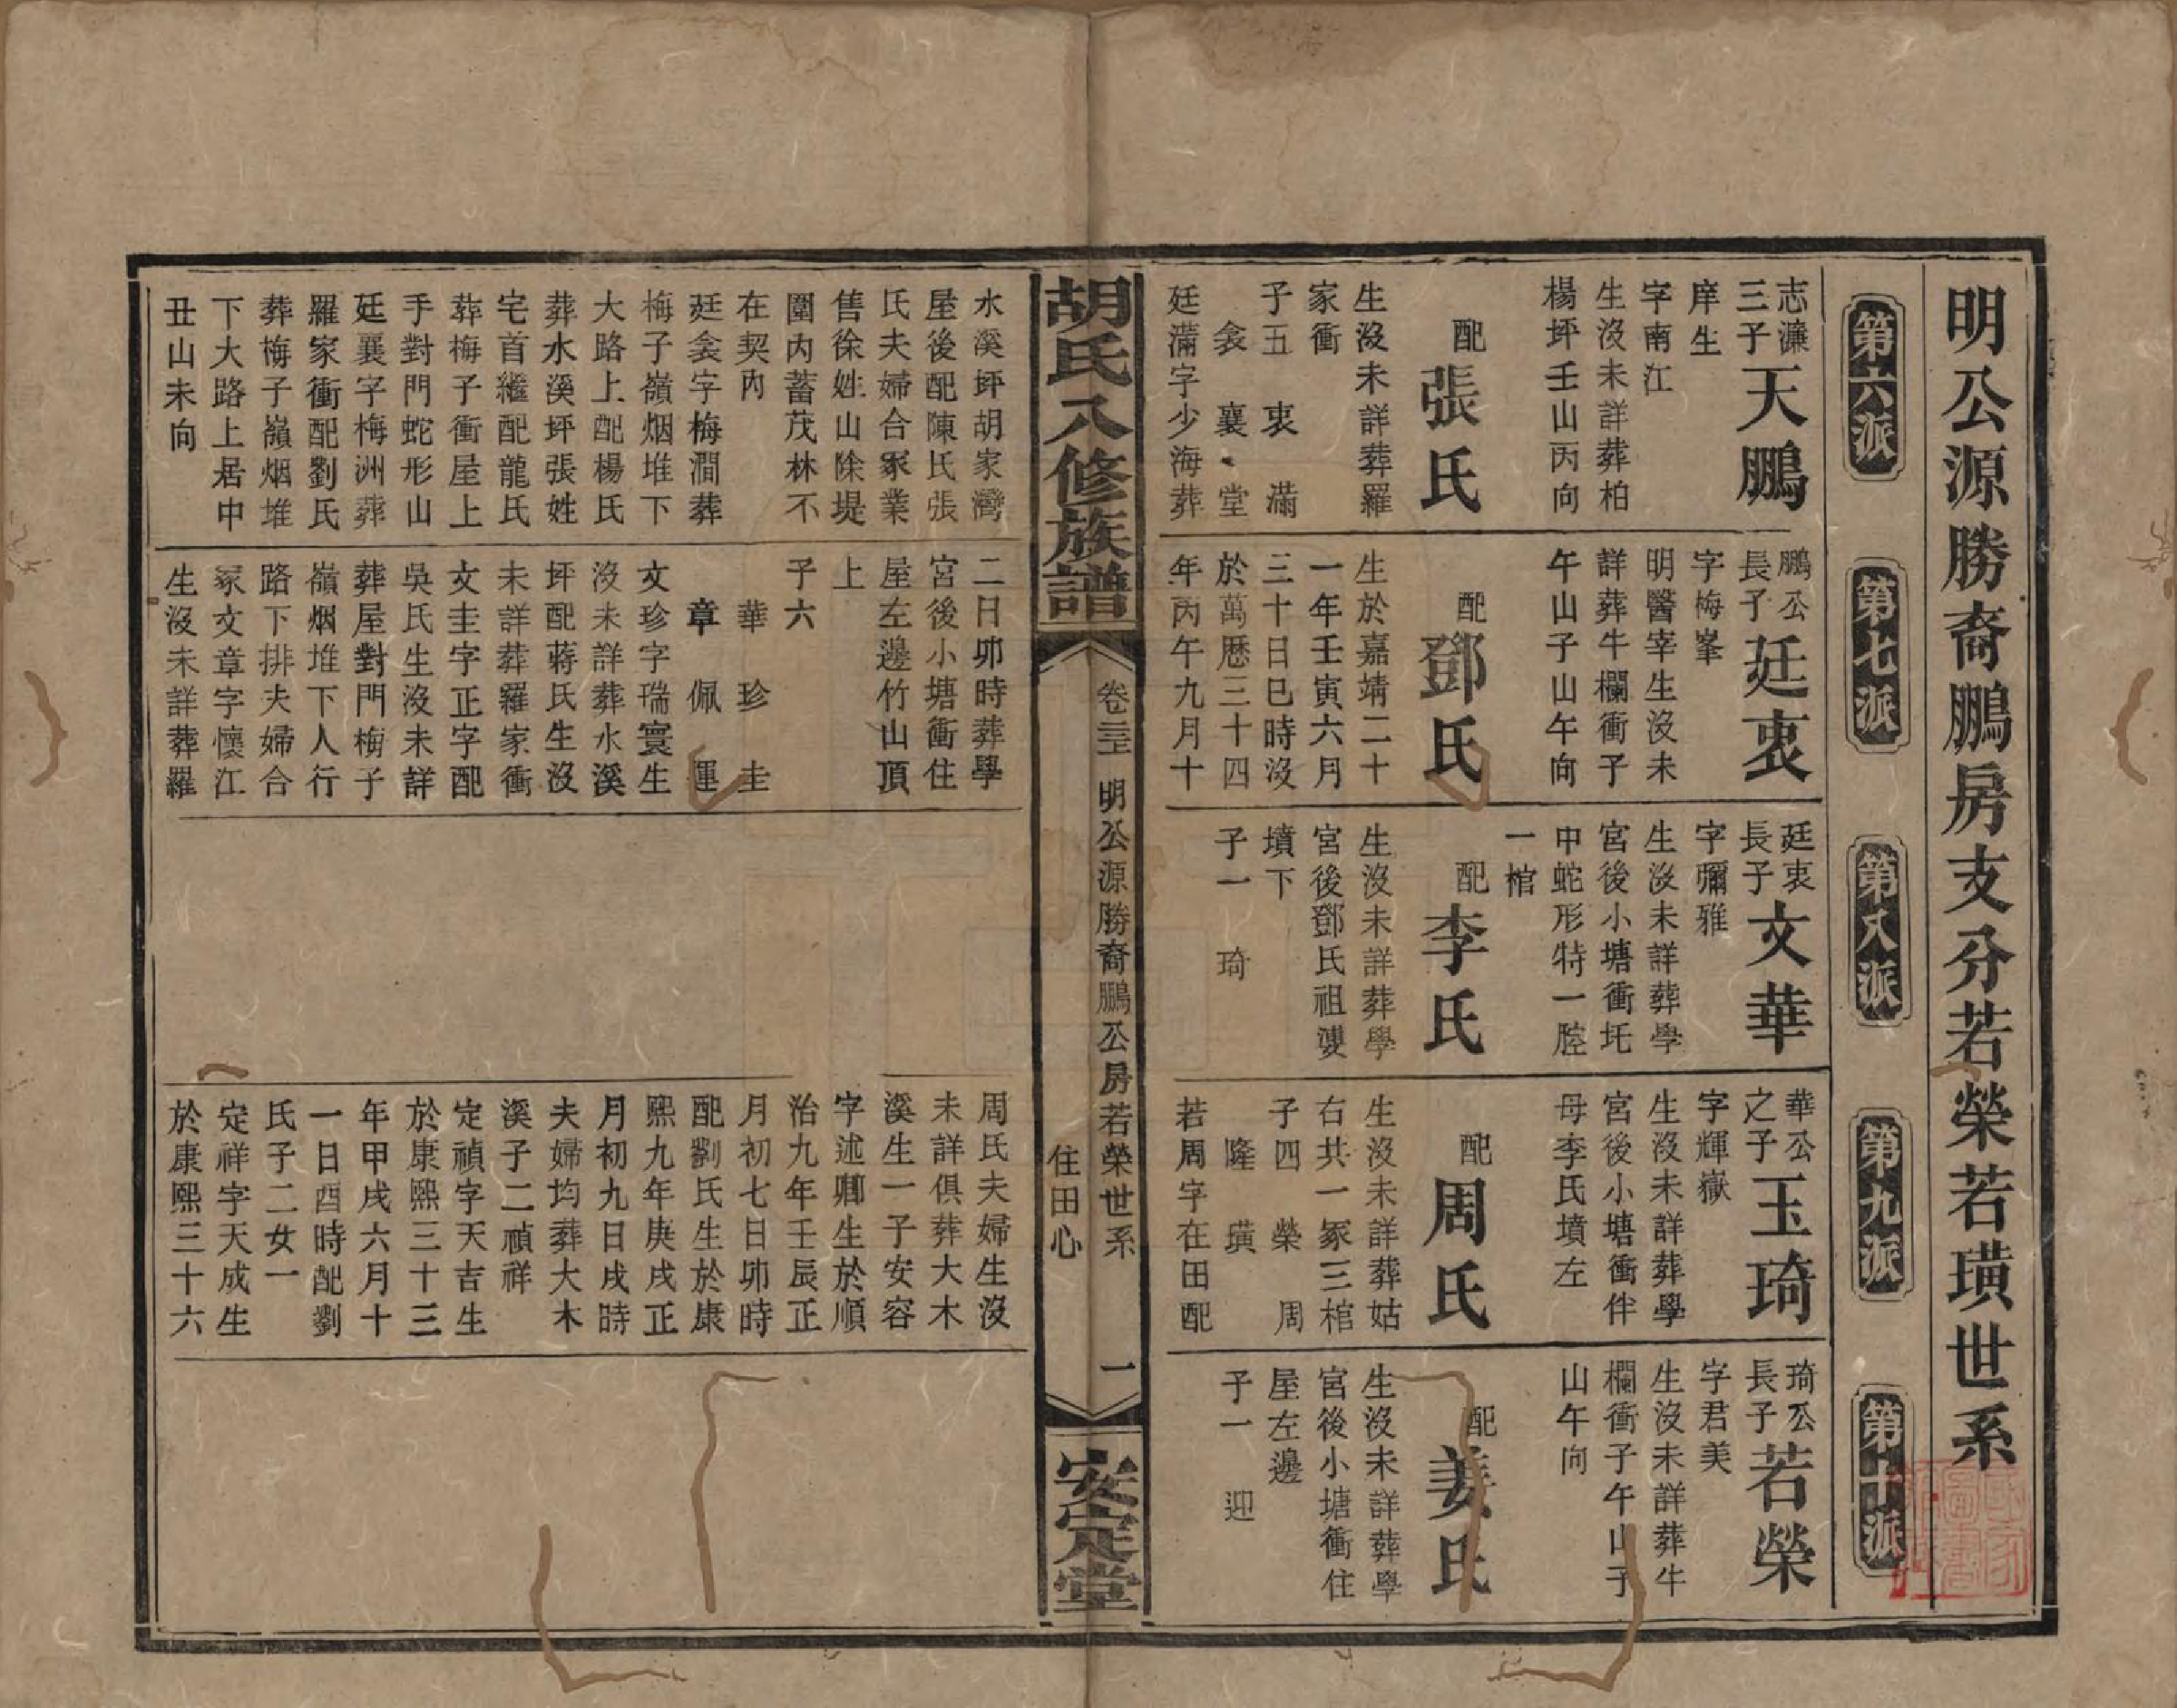 明公源勝裔鵬房支分若榮若璜世系
第六派
志濂
三子天鵬
庠生
字南江
生沒未詳葬柏
楊坪壬山丙向
配張氏
生沒未詳葬羅
家衝
子五 衷 滿
衾 襄 堂
廷滿字少海葬
水溪坪胡家灣
屋後配陳氏張
氏夫婦合冢業
售徐姓山除堤
圍內蓄茂林不
在契內
廷衾字梅澗葬
梅子嶺烟堆下
大路上配楊氏
葬水溪坪張姓
宅首繼配龍氏
葬梅子衝屋上
手對門蛇形山
廷襄字梅洲葬
羅家衝配劉氏
葬梅子嶺烟堆
下大路上居中
丑山未向
第七派
鵬公
長子廷衷
字梅峯
明醫宰生沒未
詳葬牛欄衝子
午山子山午向
配鄧氏
生於嘉靖二十
一年壬寅六月
三十日巳時沒
於萬歷三十四
年丙午九月十
二日卯時葬學
宮後小塘衝住
屋左邊竹山頂
上
子六
華 珍 圭
章 佩 運
文珍字瑞寰生
沒未詳葬水溪
坪配蔣氏生沒
未詳葬羅家衝
文圭字正字配
吳氏生沒未詳
葬屋對門梅子
嶺烟堆下人行
路下排夫婦合
冢文章字懷江
生沒未詳葬羅
第八派
廷衷
長子文華
字彌雅
生沒未詳葬學
宮後小塘衝圫
中蛇形特一腔
一棺
配李氏
生沒未詳葬學
宮後鄧氏祖㜑
墳下
子一 琦
第九派
華公
之子玉琦
字輝嶽
生沒未詳葬學
宮後小塘衝伴
母李氏墳左
配周氏
生沒未詳葬姑
右共一冢三棺
子四 榮 周
隆 璜
若周字在田配
周氏夫婦生沒
未詳俱葬大木
溪生一子安容
字述卿生於順
治九年壬辰正
月初七日卯時
配劉氏生於康
熙九年庚戌正
月初九日戌時
夫婦均葬大木
溪子二禎祥
定禎字天吉生
於康熙三十三
年甲戌六月十
一日酉時配劉
氏子二女一
定祥字天成生
於康熙三十六
第十派
琦公
長子若榮
字君美
生沒未詳葬牛
欄衝子午山子
山午向
配姜氏
生沒未詳葬學
宮後小塘衝住
屋左邊
子一 迎
胡氏八修族譜
卷三 明公源勝裔鵬公房若榮世系
住田心
一
安定堂